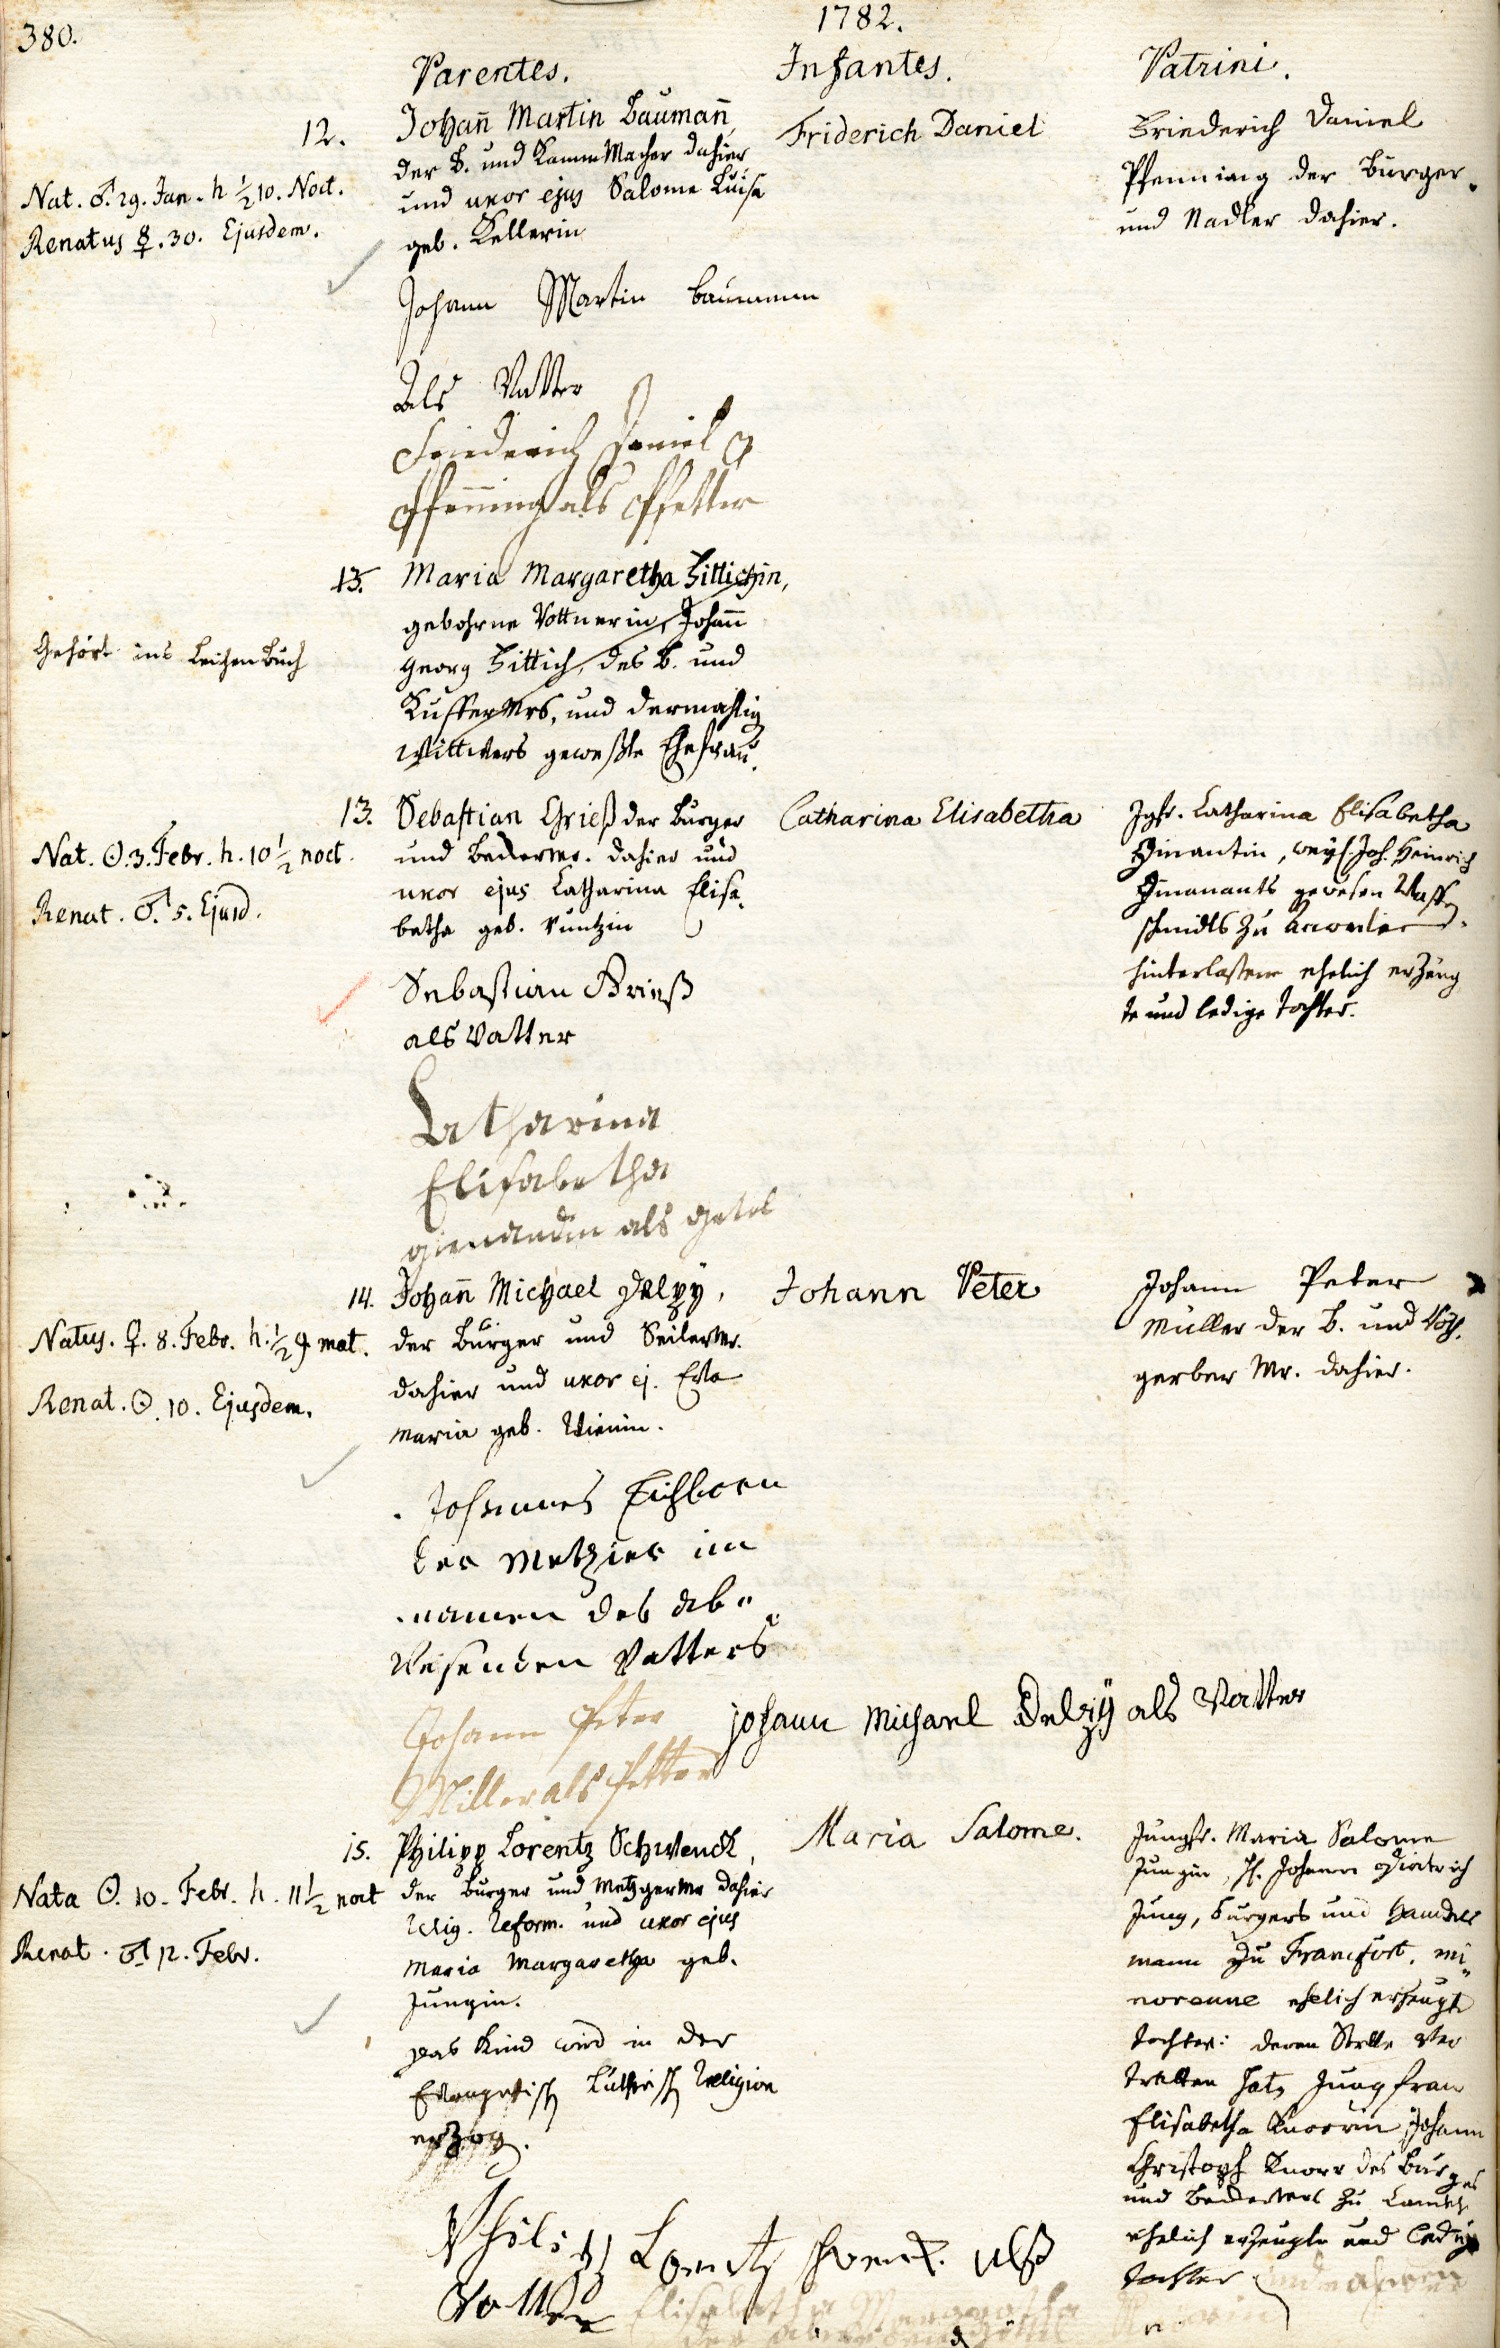 380.
1782.
Parentes.
Infantes.
Patrini.
12.
Nat. ♂. 29. Jan. h ½ 10. Noct.
Renatus ☿. 30. Ejusdem.
Johañ Martin Baumañ
der B. und KammMacher dahier
und uxor ejus Salome Luisa
geb. Kellerin
Friderich Daniel
Friederich Daniel
Pfenning der Burger
und Nadler dahier.
Johann Martin Baumann
Als Vatter
Friederich Daniel
Pfenning als Pfetter
13.
Gehört ins LeichenBuch
Maria Margaretha Zittichin,
gebohrne Vottnerin, Johañ
Georg Zittich, des B. und
Kuffermrs, und dermahlig
Wittwers geweßte Ehefrau.
13.
Nat. ☉. 3. Febr. h. 10 ½ noct.
Renat. ♂. 5. Ejusd.
Sebastian Grieß der Burger
und Beckermr. dahier und
uxor ejus Catharina Elisa
betha geb. Kuntzin
Catharina Elisabetha
Jgfr. Catharina Elisabetha
weyl. Joh. Heinrich
gewesen Waffen
schmidts zu
hinterlassene ehelich erzeug
te und ledige tochter.
Sebastian Grieß
als Vatter
Catharina
Elisabetha
als Getel
14.
Natus. ♀. 8. Febr. h. ½ 9 mat.
Renat. ☉. 10. Ejusdem.
Johañ Michael Delzÿ,
der Burger und Seilermr.
dahier und uxor ej. Eva
Maria geb.
Johann Peter
Johann Peter
Müller der B. und Roth
gerber Mr. dahier.
Johannes Eichborn
der Metzier im
namen des ab„
Wesenden Vatters
Johann Peter
Miller als Petter
Johann Michael Delzÿ als Vatter
15.
Nata ☉. 10. Febr. h. 11 ½ noct
Renat. ♂ 12. Febr.
Philipp Lorentz Schwenck,
der Burger und Metzgermr dahier
Relig. Reform. und uxor ejus
Maria Margaretha geb.
Jungin.
das Kind wird in der
Evangelisch Lutherisch Religion
erzog.
Maria Salome.
Jungfr. Maria Salome
Jungin, H. Johann Dietrich
Jung, burgers und Handels
mann zu Francfort, mi„
norenne ehelich erzeugte
tochter: deren Stelle Ver
tretten hat, Jungfrau
Elisabetha Knorrin Johann
Christoph Knorr des Burgers
und Beckermrs zu
ehelich erzeugte und ledige
tochter
Philipp Lorentz Schwenck alß
Vatter
Elisabetha Margaretha